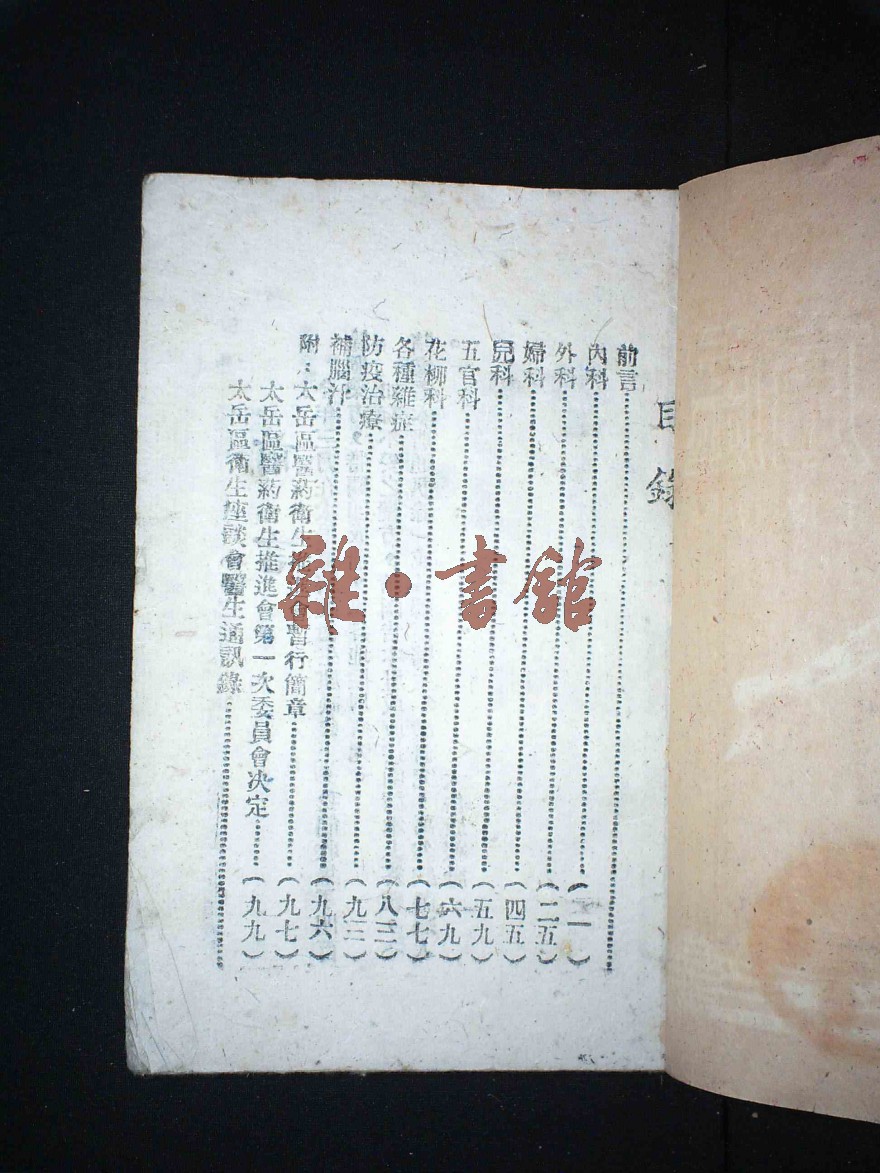 目錄
前言
內科（一）
外科（二五）
婦科（四五）
兒科（五九）
五官科（六九）
花柳科（七七）
各種雜症（八三）
防疫治療（九三）
補腦汁（九六）
附：太岳區醫葯衛生 暫行簡章（九七）
太岳區醫葯衛生推進會第一次委員會決定（九九）
太岳區衛生座談會醫生通訊錄
雜·書館